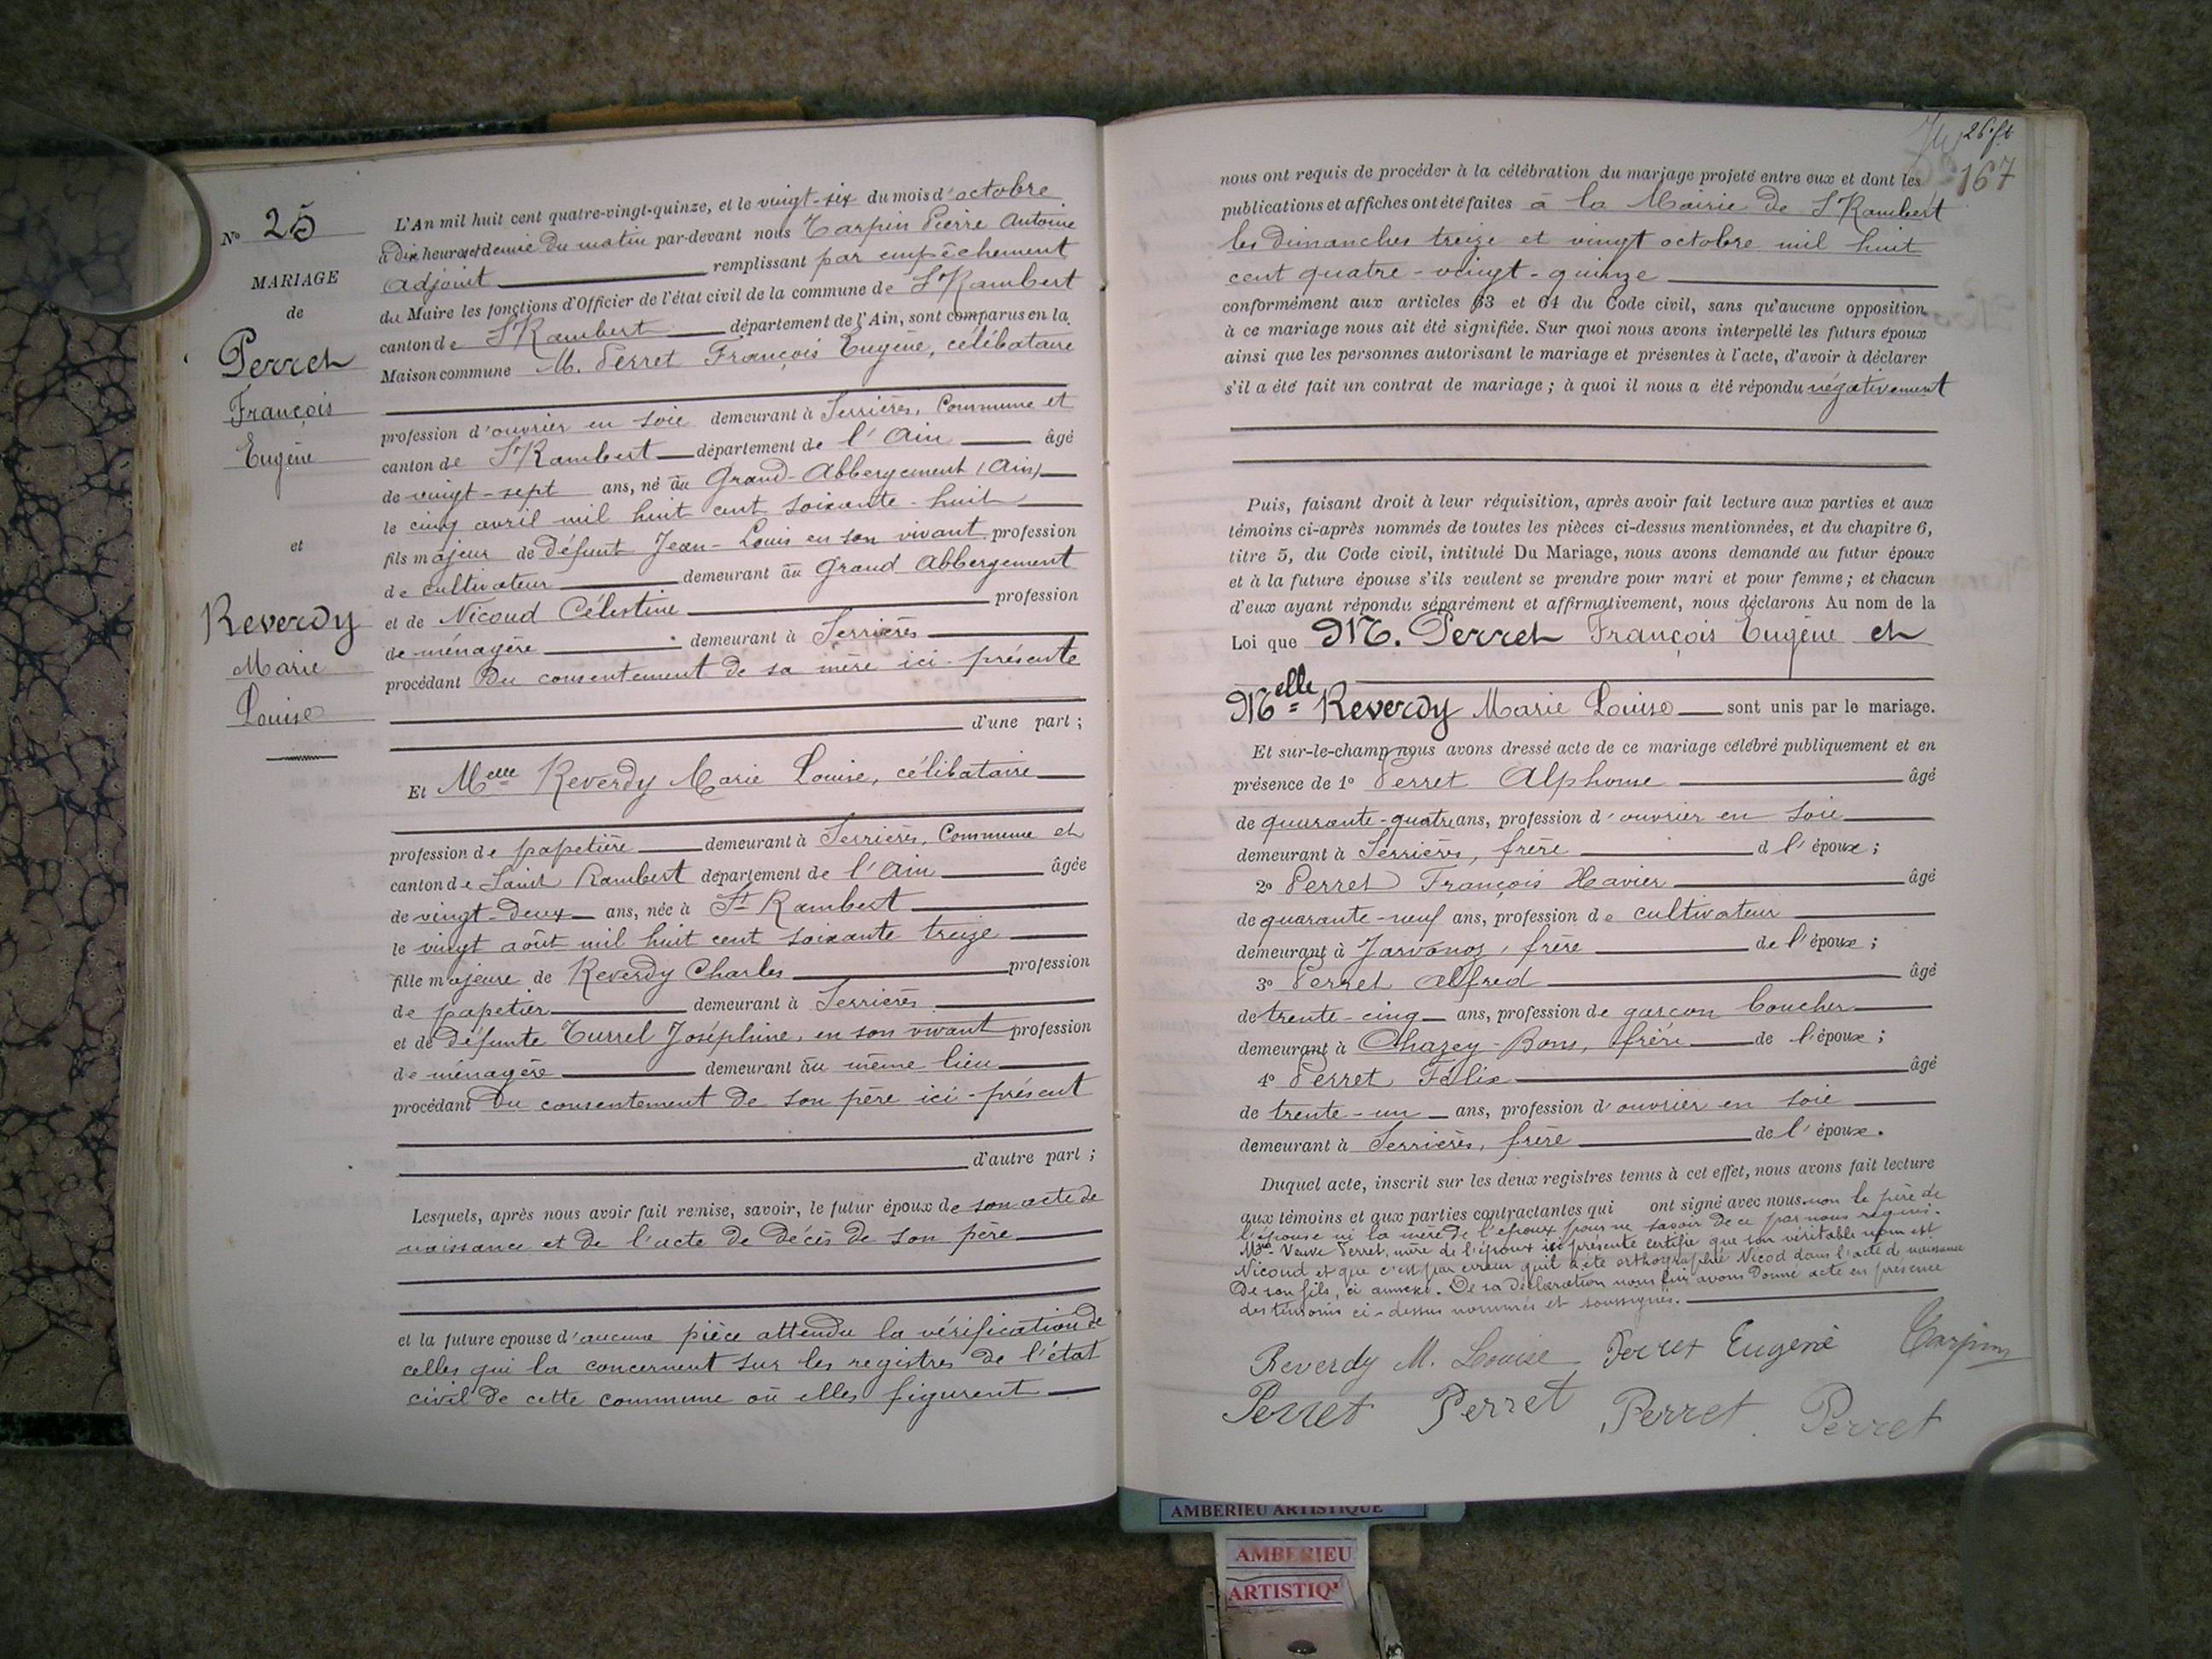 N° 25
MARIAGE
de
Perret
François
Eugène
et
Reverdy
Marie
Louise
L'An mil huit cent quatre-vingt-quinze, et le vingt-six du mois d'octobre
à dix heures et demie du matin par-devant nous Tarpin Pierre Antoine
adjoint remplissant par empêchement
du Maire les fonctions d'Officier de l'état civil de la commune de St Rambert
canton de St Rambert département de l'Ain, sont comparus en la
Maison commune M. Perret François Eugène, célibataire
profession d'ouvrier en soie demeurant à Serrières, Commune et
canton de St Rambert département de l'Ain âgé
de vingt-sept ans, né au Grand-Abbergement (Ain)
le cinq avril mil huit cent soixante-huit
fils majeur de défunt Jean-Louis en son vivant profession
de cultivateur demeurant au Grand Abbergement
et de Nicoud Célestine profession
de ménagère demeurant à Serrières
procédant Du consentement de sa mère ici-présente
d'une part ;
Et Melle Reverdy Marie Louise, célibataire
profession de papetière demeurant à Serrières, Commune et
canton de Saint Rambert département de l'Ain âgée
de vingt-deux ans, née à St Rambert
le vingt août mil huit cent soixante treize
fille majeure de Reverdy Charles profession
de papetier demeurant à Serrières
et de défunte Turrel Joséphine, en son vivant profession
de ménagère demeurant au même lieu
procédant Du consentement de son père ici-présent
d'autre part ;
Lesquels, après nous avoir fait remise, savoir, le futur époux de son acte de
naissance et de l'acte de décès de son père
et la future épouse d'aucune pièce attendu la vérification de
celles qui la concernent sur les registres de l'état
civil de cette commune où elles figurent
167
nous ont requis de procéder à la célébration du mariage projeté entre eux et dont les
publications et affiches ont été faites à la Mairie de St Rambert
les dimanches treize et vingt octobre mil huit
cent quatre-vingt-quinze
conformément aux articles 63 et 64 du Code civil, sans qu'aucune opposition
à ce mariage nous ait été signifiée. Sur quoi nous avons interpellé les futurs époux
ainsi que les personnes autorisant le mariage et présentes à l'acte, d'avoir à déclarer
s'il a été fait un contrat de mariage ; à quoi il nous a été répondu négativement
Puis, faisant droit à leur réquisition, après avoir fait lecture aux parties et aux
témoins ci-après nommés de toutes les pièces ci-dessus mentionnées, et du chapitre 6,
titre 5, du Code civil, intitulé Du Mariage, nous avons demandé au futur époux
et à la future épouse s'ils veulent se prendre pour mari et pour femme ; et chacun
d'eux ayant répondu séparément et affirmativement, nous déclarons Au nom de la
Loi que M. Perret François Eugène et
Melle Reverdy Marie Louise sont unis par le mariage.
Et sur-le-champ nous avons dressé acte de ce mariage célébré publiquement et en
présence de 1° Perret Alphonse âgé
de quarante-quatre ans, profession d'ouvrier en soie
demeurant à Serrières, frère d l'époux ;
2° Perret François Xavier âgé
de quarante-neuf ans, profession de cultivateur
demeurant à Jarvonoz, frère de l'époux ;
3° Perret Alfred âgé
de trente-cinq ans, profession de garçon boucher
demeurant à Chazey-Bons, frère de l'époux ;
4° Perret Félix âgé
de trente-un ans, profession d'ouvrier en soie
demeurant à Serrières, frère de l'époux.
Duquel acte, inscrit sur les deux registres tenus à cet effet, nous avons fait lecture
aux témoins et aux parties contractantes qui ont signé avec nous. non le père de
l'épouse ni la mère de l'époux pour ne savoir de ce par nous requis.
Mme Veuve Perret, mère de l'époux ici présente certifie que son véritable nom est
Nicoud et que c'est par erreur qu'il a été orthographié Nicod dans l'acte de naissance
De son fils, ci annexé. De sa déclaration nous lui avons donné acte en présence
des témoins ci-dessus nommés et soussignés.
Reverdy M. Louise Perret Eugène Tarpin
Perret Perret Perret Perret
AMBERIEU ARTISTIQUE
AMBERIEU
ARTISTIQ